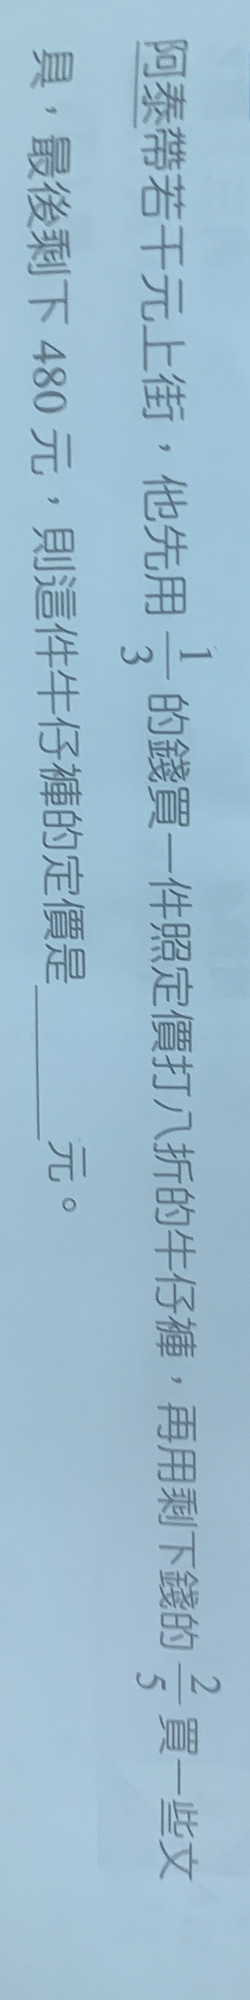 阿泰帶若干元上街，他先用 1/3 的錢買一件照定價打八折的牛仔褲，再用剩下錢的 2/5 買一些文
具，最後剩下 480 元，則這件牛仔褲的定價是______元。